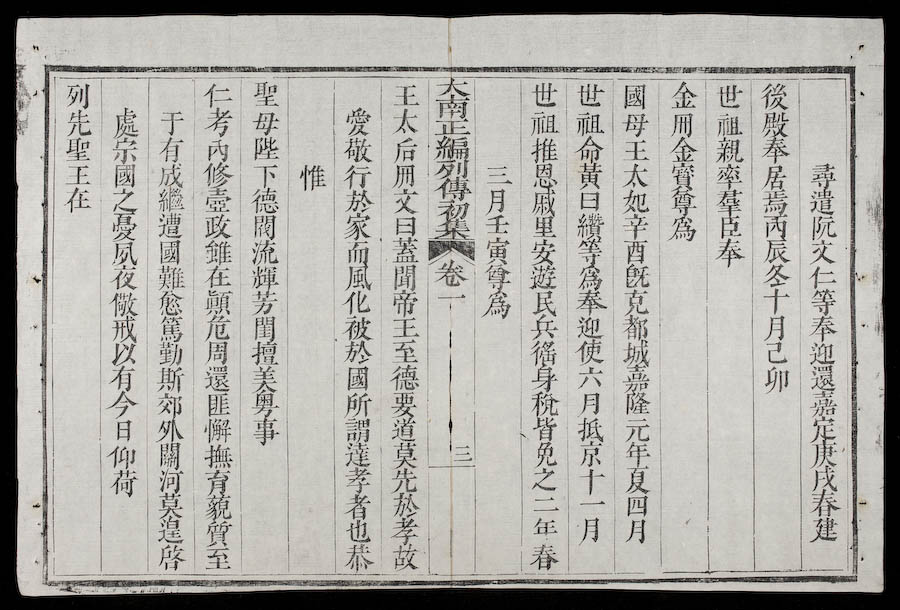 尋遣阮文仁等奉迎還嘉定庚戌春建
後殿奉居焉丙辰冬十月己卯
世祖親率羣臣奉
金冊金寶尊爲
國母王太妃辛酉旣克都城嘉隆元年夏四月
世祖命黃曰纘等爲奉迎使六月抵京十一月
世祖推恩戚里安遊民兵徭身稅皆免之二年春
三月壬寅尊爲
大南正編列傳初集 卷一 三
王太后冊文曰蓋聞帝王至德要道莫先於孝故
愛敬行於家而風化被於國所謂達孝者也恭
惟
聖母陛下德閥流輝芳閨擅美粵事
仁考內修壼政雖在顚危周還匪懈撫育藐質至
于有成繼遭國難愈篤勤斯郊外關河莫遑啓
處宗國之憂夙夜儆戒以有今日仰荷
列先聖王在